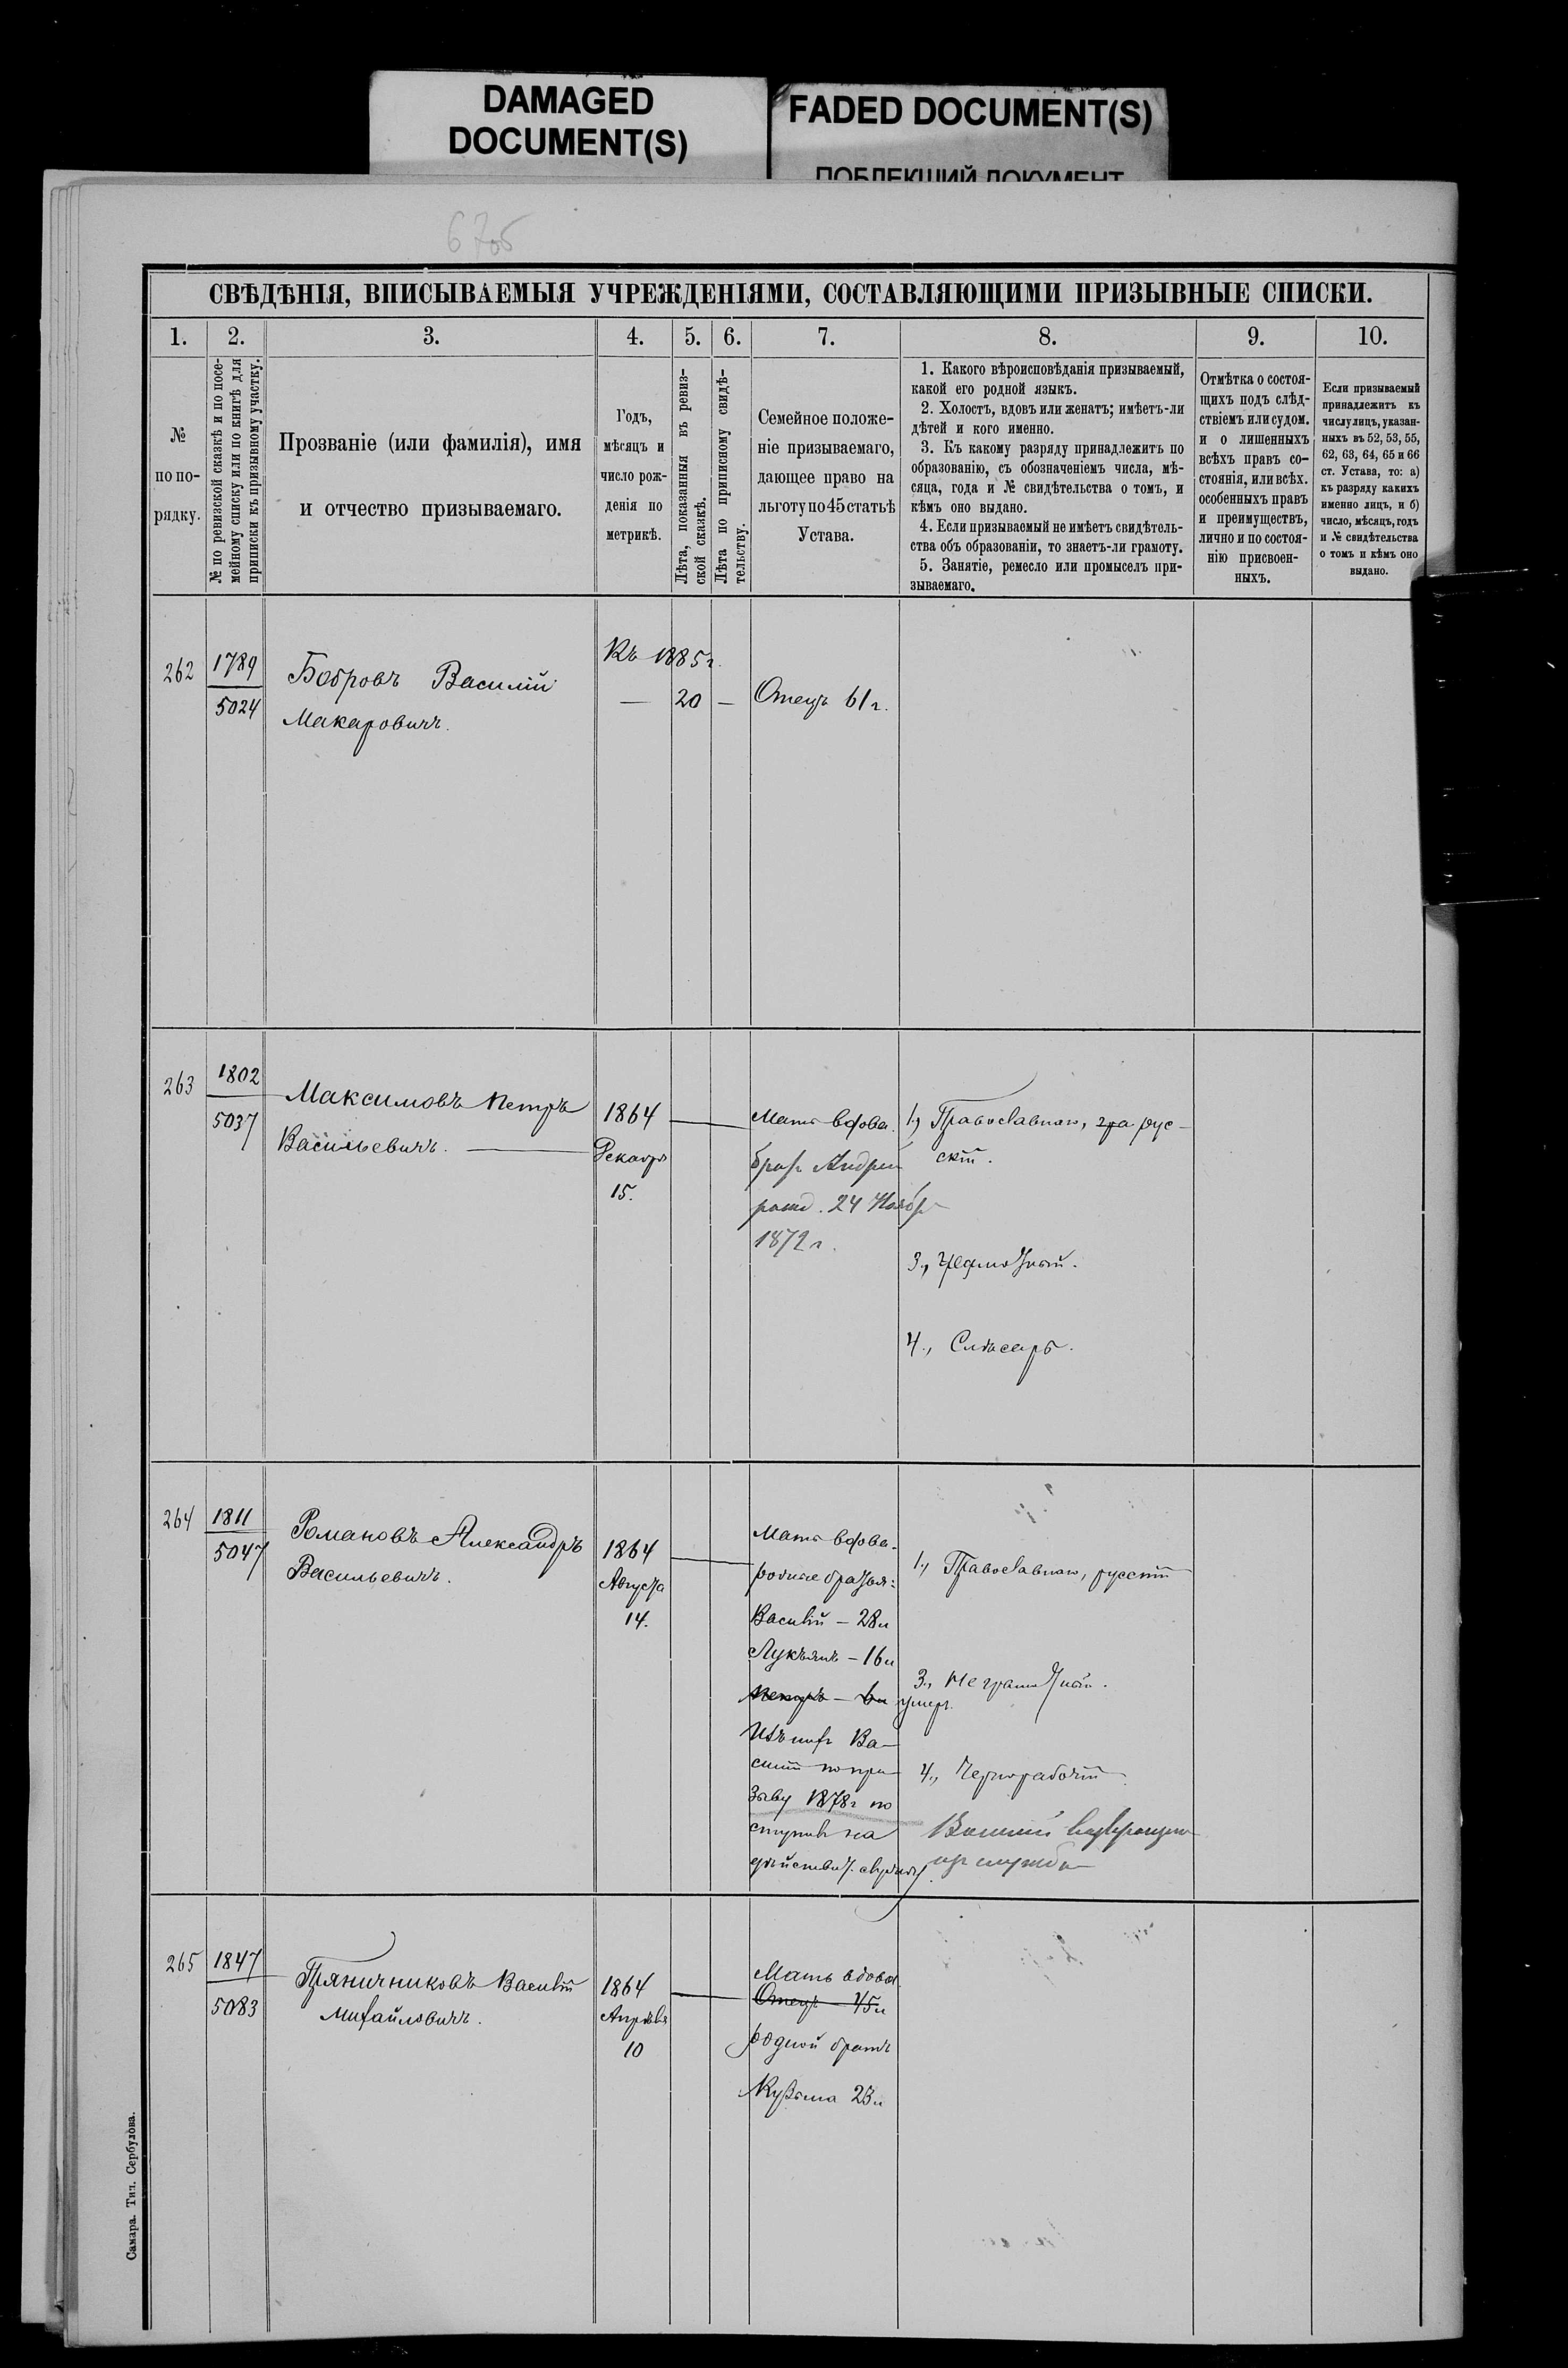 DAMAGED
DOCUMENT(S)
FADED DOCUMENT(S)
ПОБЛЕКШИЙ ДОКУМЕНТ
6705
СВѢДѢНІЯ, ВПИСЫВАЕМЫЯ УЧРЕЖДЕНІЯМИ, СОСТАВЛЯЮЩИМИ ПРИЗЫВНЫЕ СПИСКИ.
1. 2. 3. 4. 5. 6. 7. 8. 9. 10.
№
по по-
рядку.
№ по ревизской сказкѣ и по посе-
мейному списку или по книгѣ для
приписки къ призывному участку.
Прозваніе (или фамилія), имя
и отчество призываемаго.
Годъ,
мѣсяцъ и
число рож-
денія по
метрикѣ.
Лѣта, показанныя въ ревиз-
ской сказкѣ.
Лѣта по приписному свидѣ-
тельству.
Семейное положе-
ніе призываемаго,
дающее право на
льготу по 45 статьѣ
Устава.
1. Какого вѣроисповѣданія призываемый,
какой его родной языкъ.
2. Холостъ, вдовъ или женатъ; имѣетъ-ли
дѣтей и кого именно.
3. Къ какому разряду принадлежитъ по
образованію, съ обозначеніемъ числа, мѣ-
сяца, года и № свидѣтельства о томъ, и
кѣмъ оно выдано.
4. Если призываемый не имѣетъ свидѣтель-
ства объ образованіи, то знаетъ-ли грамоту.
5. Занятіе, ремесло или промыселъ при-
зываемаго.
Отмѣтка о состоя-
щихъ подъ слѣд-
ствіемъ или судом.
и о лишенныхъ
всѣхъ правъ со-
стоянія, или всѣх.
особенныхъ правъ
и преимуществъ,
лично и по состоя-
нію присвоен-
ныхъ.
Если призываемый
принадлежитъ къ
числу лицъ, указан-
ныхъ въ 52, 53, 55,
62, 63, 64, 65 и 66
ст. Устава, то: а)
къ разряду какихъ
именно лиц, и б)
число, мѣсяцъ, годъ
и № свидѣтельства
о томъ и кѣмъ оно
выдано.
262
1789
5024
Бобровъ Василій
Макаровичъ.
Къ 1885 г.
— 20 —
Отецъ 61 г.
263
1802
5037
Максимовъ Петръ
Васильевичъ.
1864
Декабря
15.
Мать вдова.
братъ Андрей
рожд. 24 Ноябр
1872 г.
1., Православнаго, рус-
скій.
3.,
4., Слѣсарь.
264
1811
5047
Романовъ Александръ
Васильевичъ.
1864
Августа
14.
Мать вдова.
родные братья:
Василій — 28 л
Лукьянъ — 16 л
умеръ.
Изъ нихъ Ва-
силій по при
зыву 1878 г по
ступилъ на
дѣйствит. службу.
1., Православнаго, русскій
3., Не грамотный.
4., Чернорабочій
Василій
изъ службы
265
1847
5083
Пряничниковъ Василій
Михайловичъ.
1864
Апрѣля
10
Мать вдова
Отецъ 45 л
родной братъ
Кузьма 23 л
Самара. Тип. Сербулова.